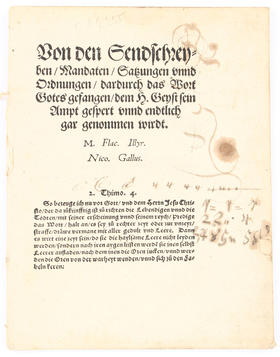 Von den Sendschrey-
ben / Mandaten / Satzungen vnnd
Ordnungen / dardurch das Wort
Gotes gefangen / dem H. Geyst sein
Ampt gespert vnnd endtlich
gar genommen wirdt.
M. Flac. Illyr.
Nico. Gallus.
2. Thimo. 4.
So bezeuge ich nu vor Gott / vnd dem Herrn Jesu Chri-
sto / der da zůkünfftig ist zů richten die Lebendigen vnnd die
Todten / mit seiner erscheinung vnnd seinem reych / Predige
das Wort / halt an / es sey zů rechter zeyt oder zur vnzeyt /
straffe / dräwe vermane mit aller gedult vnd Leere. Dann
es wirt eine zeyt sein / do sie die haylsame Leere nicht leyden
werden / sondern nach iren aygen lüsten werdē sie inen selbst
Leerer auffladen / nach dem inen die Oren jucken / vnd wer-
den die Oren von der warheyt wenden / vnd sich zů den Fa-
beln keren: